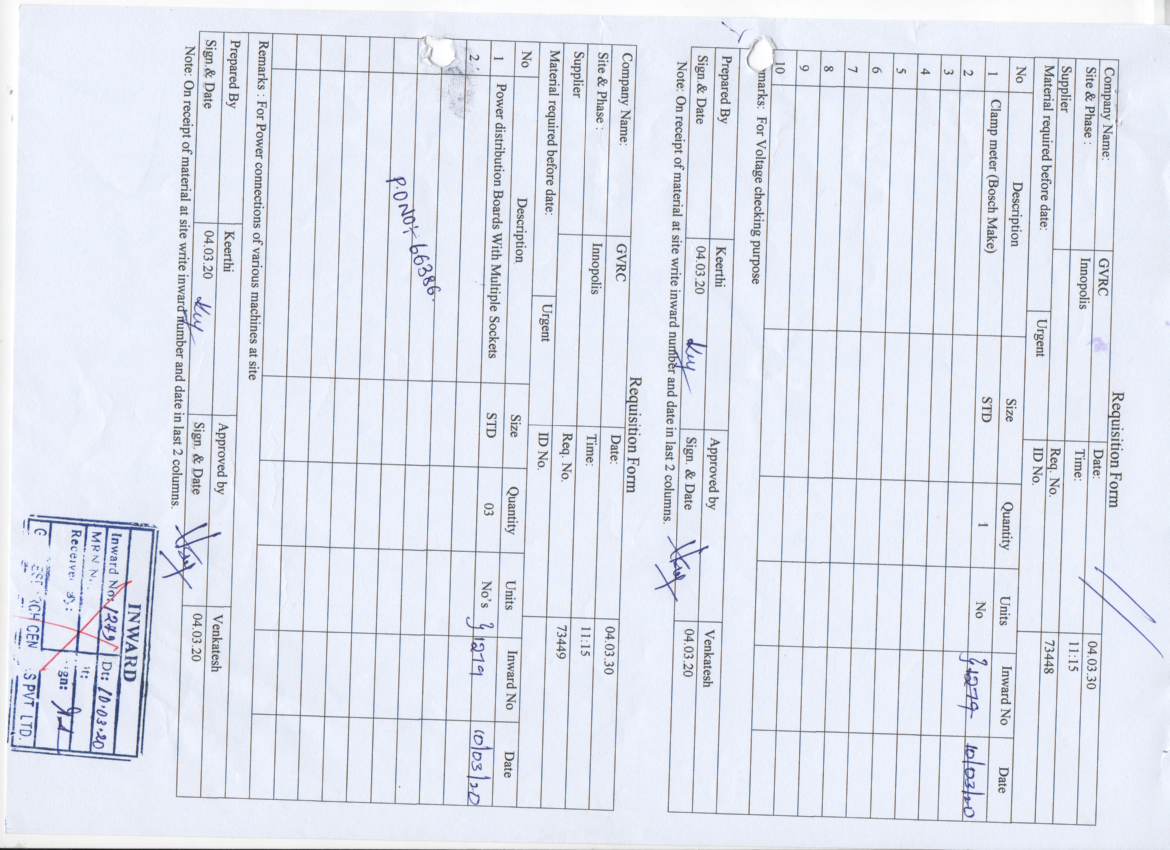 Requisition Form
Company Name: GVRC Date: 04.03.30
Site & Phase : Innopolis Time: 11:15
Supplier Req. No. 73448
Material required before date: Urgent ID No.
No Description Size Quantity Units Inward No Date
1 Clamp meter (Bosch Make) STD 1 No 1279 10/03/20
2
3
4
5
6
7
8
9
10
marks: For Voltage checking purpose
Prepared By Keerthi Approved by Venkatesh
Sign.& Date 04.03.20 Sign. & Date 04.03.20
Note: On receipt of material at site write inward number and date in last 2 columns.
Requisition Form
Company Name: GVRC Date: 04.03.30
Site & Phase : Innopolis Time: 11:15
Supplier Req. No. 73449
Material required before date: Urgent ID No.
No Description Size Quantity Units Inward No Date
1 Power distribution Boards With Multiple Sockets STD 03 No's 1279 10/03/20
2
P.O NO:- 66386
Remarks : For Power connections of various machines at site
Prepared By Keerthi Approved by Venkatesh
Sign.& Date 04.03.20 Sign. & Date 04.03.20
Note: On receipt of material at site write inward number and date in last 2 columns.
INWARD
Inward No: 1279 Dt: 10.03.20
MRN N
Receive
G CEN S PVT LTD.